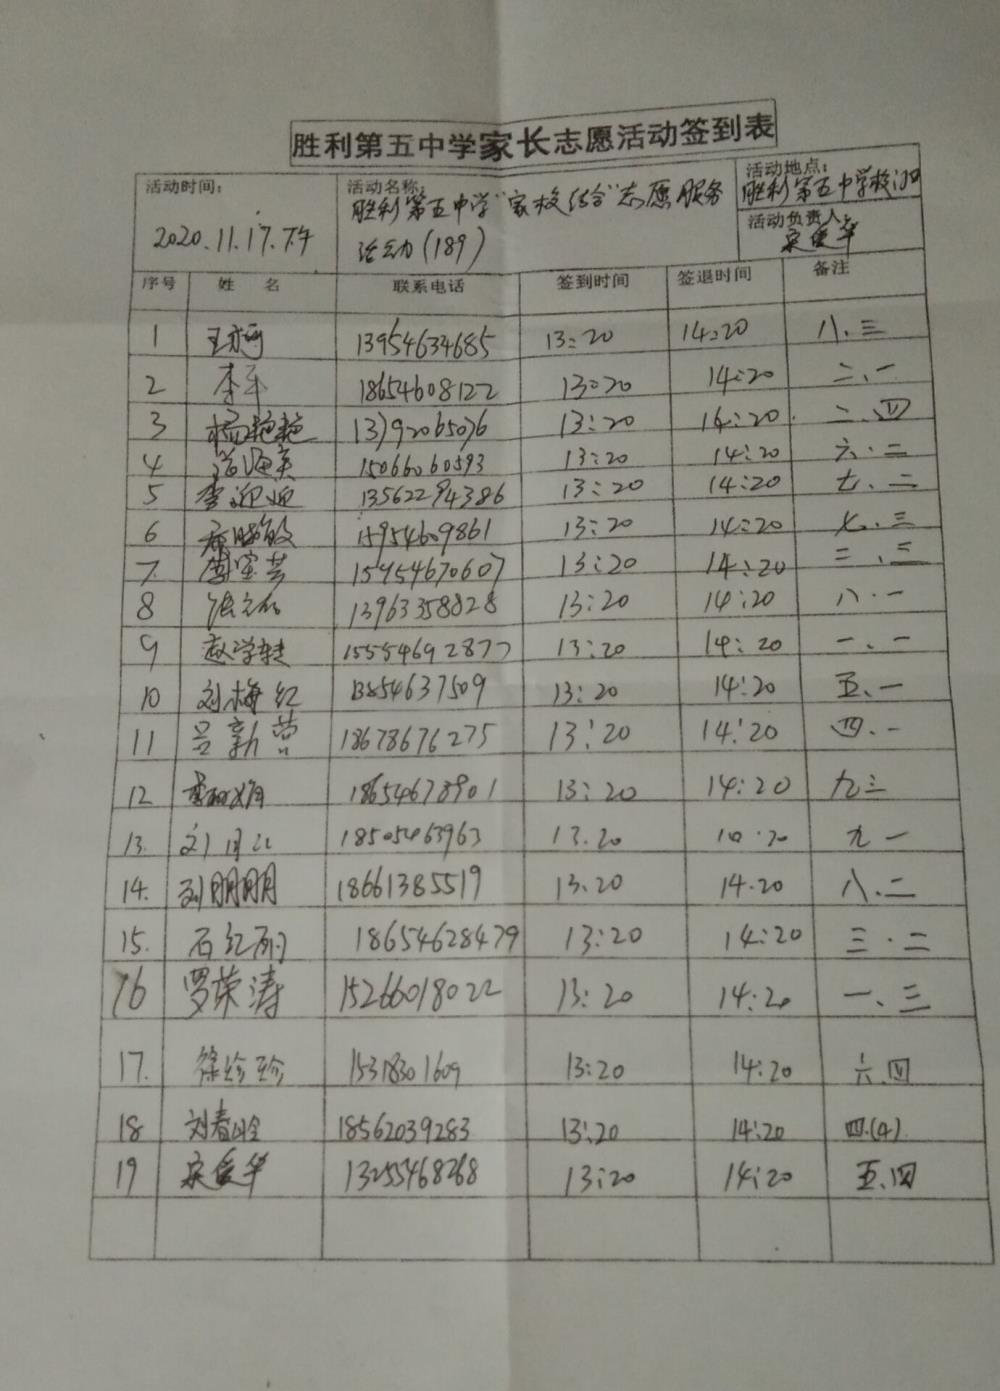 胜利第五中学家长志愿活动签到表
活动时间： 2020.11.17.下午
活动名称： 胜利第五中学"家校结合"志愿服务
活动(189)
活动地点： 胜利第五中学校门口
活动负责人： 宋爱华
序号 姓 名 联系电话 签到时间 签退时间 备注
1 13954634685 13:20 14:20 八.三
2 李军 18654608122 13:20 14:20 二.一
3 杨艳艳 13792065076 13:20 14:20 二.四
4 15066060593 13:20 14:20 六.二
5 李迎迎 13562294386 13:20 14:20 七.二
6 15954609861 13:20 14:20 七.三
7. 15954670607 13:20 14:20 二.三
8 13963358828 13:20 14:20 八.一
9 15554692877 13:20 14:20 一.一
10 刘梅红 13854637509 13:20 14:20 五.一
11 吕新营 18678676275 13:20 14:20 四.一
12 18654673901 13:20 14:20 九三
13. 18505463963 13.20 九一
14. 刘朋朋 18661385519 13.20 14.20 八.二
15. 石红丽 18654628479 13:20 14:20 三.二
16 罗荣涛 15266018022 13:20 14:20 一、三
17. 徐珍珍 15318301609 13:20 14:20 六.四
18 刘春玲 18562039283 13:20 14:20 四.(4)
19 宋爱华 13255468268 13:20 14:20 五.四